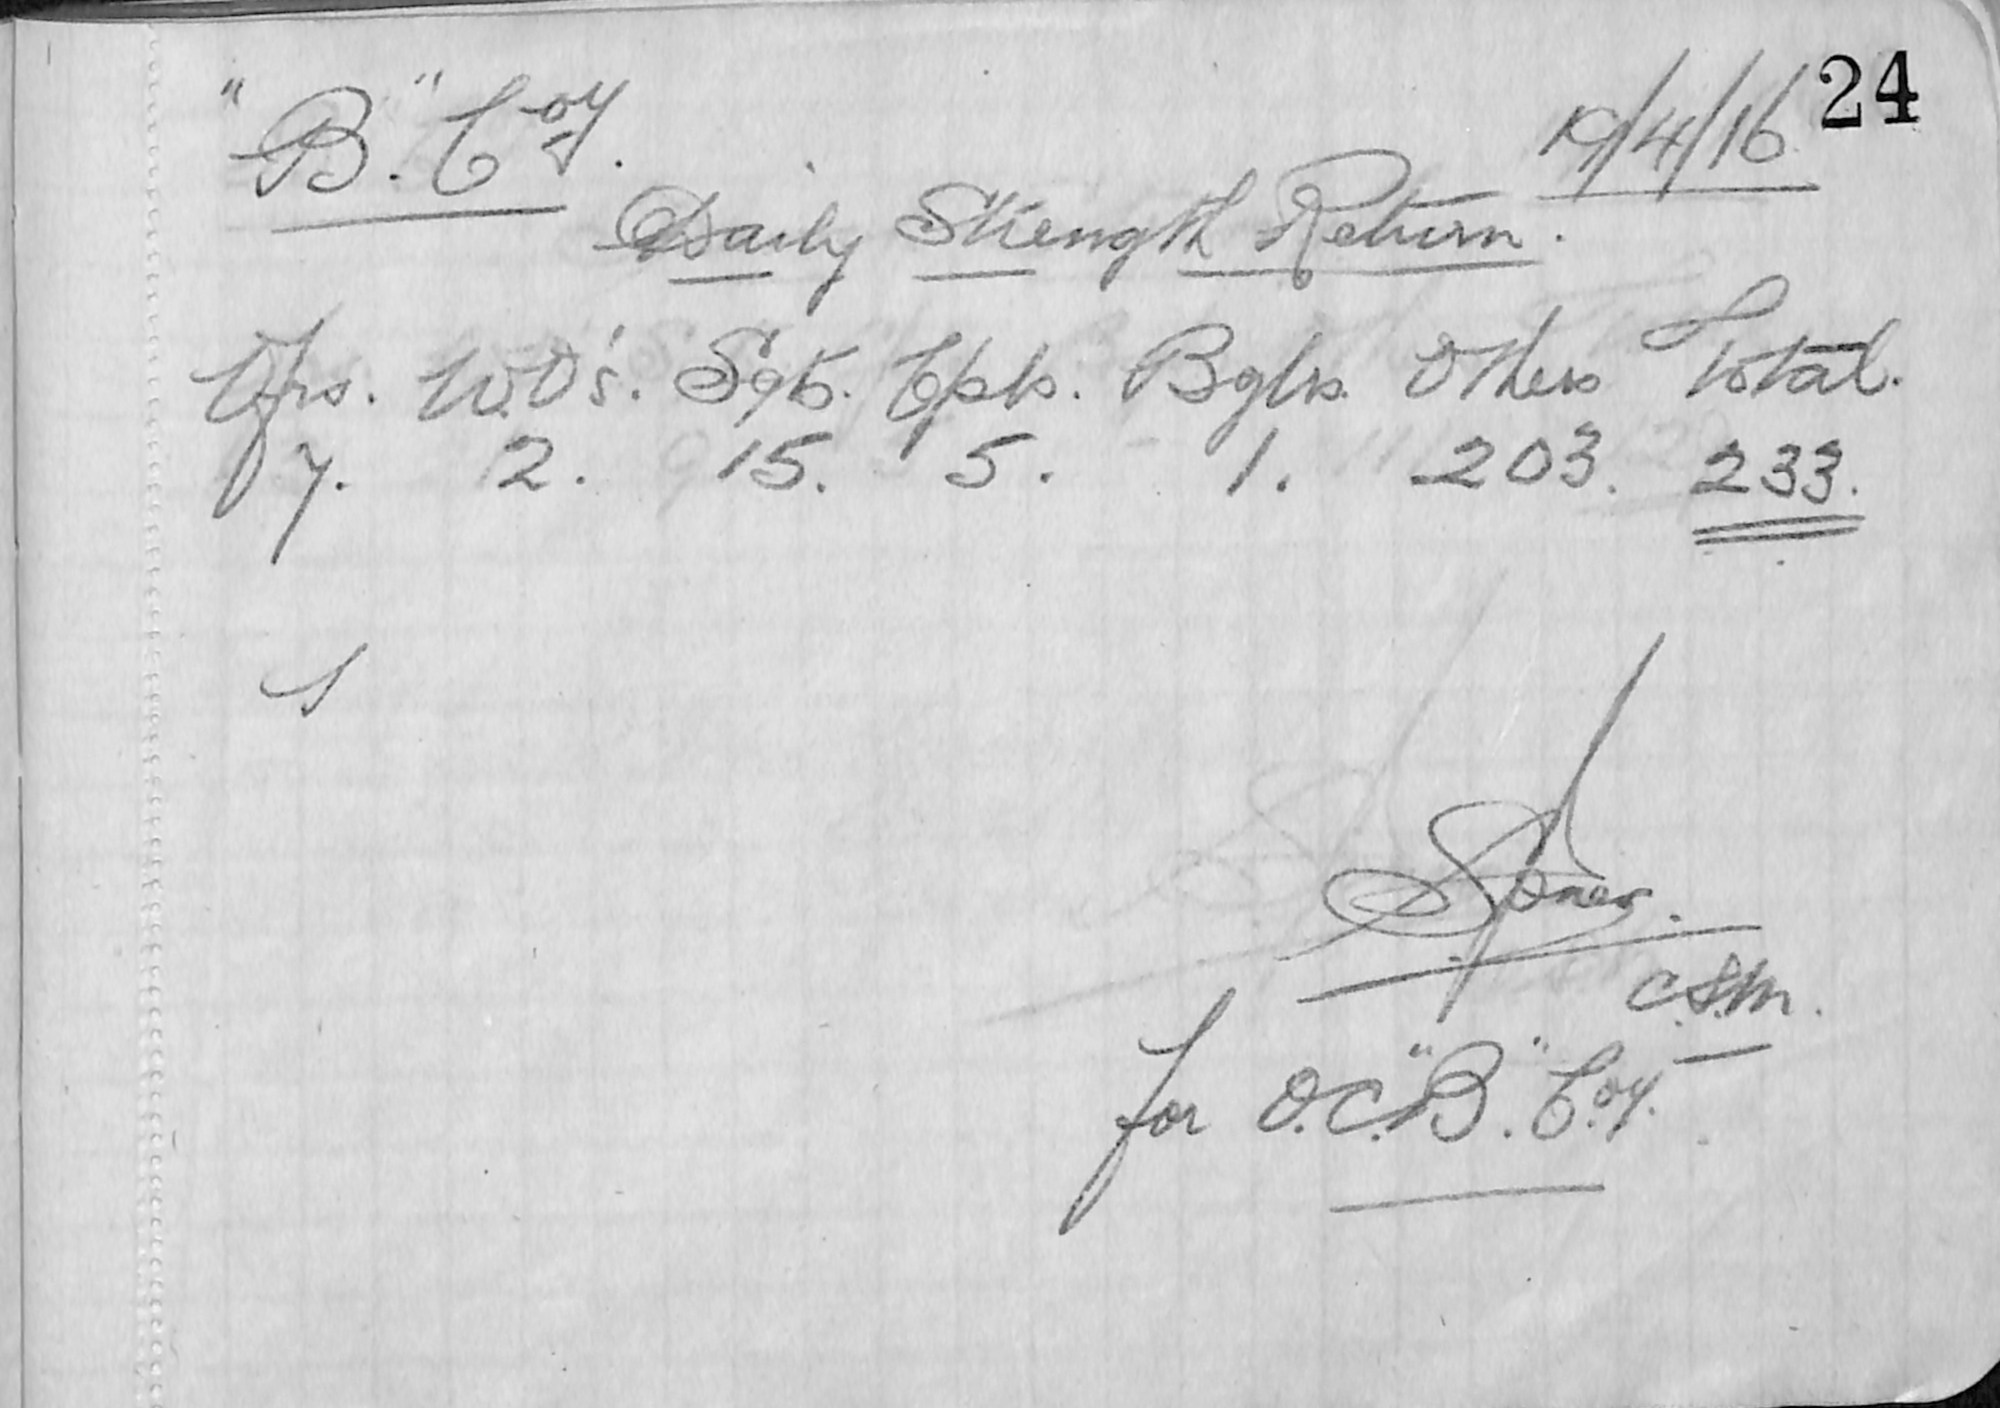 24
"B". Coy. 19/4/16
Daily Strength Return.
Ofrs. W.O's. Sgts. Cpls. Bglrs. Others Total.
7. 2. 15. 5. 1. 203. 233.
Jones.
C.S.M.
for O.C. "B". Coy.